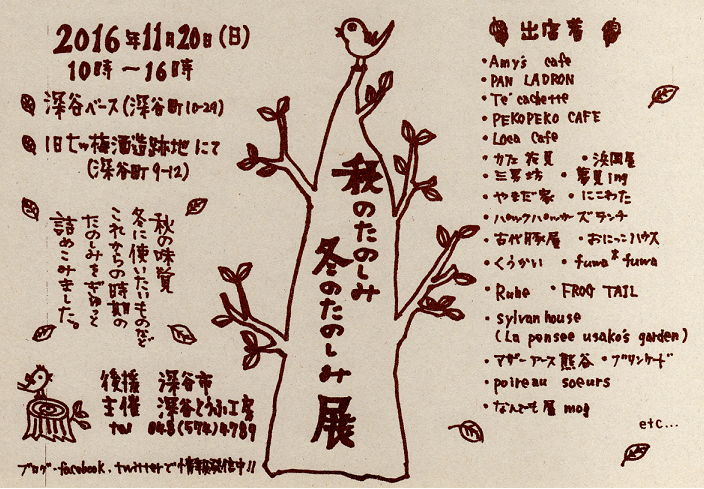 2016年11月20日(日)
10時〜16時
深谷ベース(深谷町10-29)
旧七ツ梅酒造跡地にて
(深谷町9-12)
秋の味覚
冬に使いたいものなど
これからの時期の
たのしみをぎゅっと
詰めこみました。
後援 深谷市
主催 深谷とうふ工房
tel 048(574)4789
ブログ・facebook.twitterで情報発信中!!
秋のたのしみ
冬のたのしみ展
出店者
・Amy's cafe
・PAN LADRON
・Te' cachette
・PEKOPEKO CAFE
・Loca Cafe
・カフェ花見 ・浜岡屋
・三男坊 ・夢見ing
・やまだ家 ・にこわた
・ハックハッカーズランチ
・古代豚屋 ・おにっこハウス
・くうかい ・fuwa*fuwa
・Rube ・FROG TAIL
・sylvan house
(La pensee usako's garden)
・マザーアース熊谷 ・ブリンケード
・poireau soeurs
・なんでも屋 mog
etc...